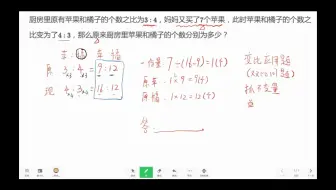 厨房里原有苹果和橘子的个数之比为3:4，妈妈又买了7个苹果，此时苹果和橘子的个数之
比变为了4:3，那么原来厨房里苹果和橘子的个数分别为多少？
苹:橘 苹 橘
原 3:4 = 9:12
×3 ×3
现 4:3 = 16:12
×4 ×4
一份量 7÷(16-9)=1(个)
原苹: 1×9=9(个)
原橘: 1×12=12(个)
答:
变比应用题
抓不变量